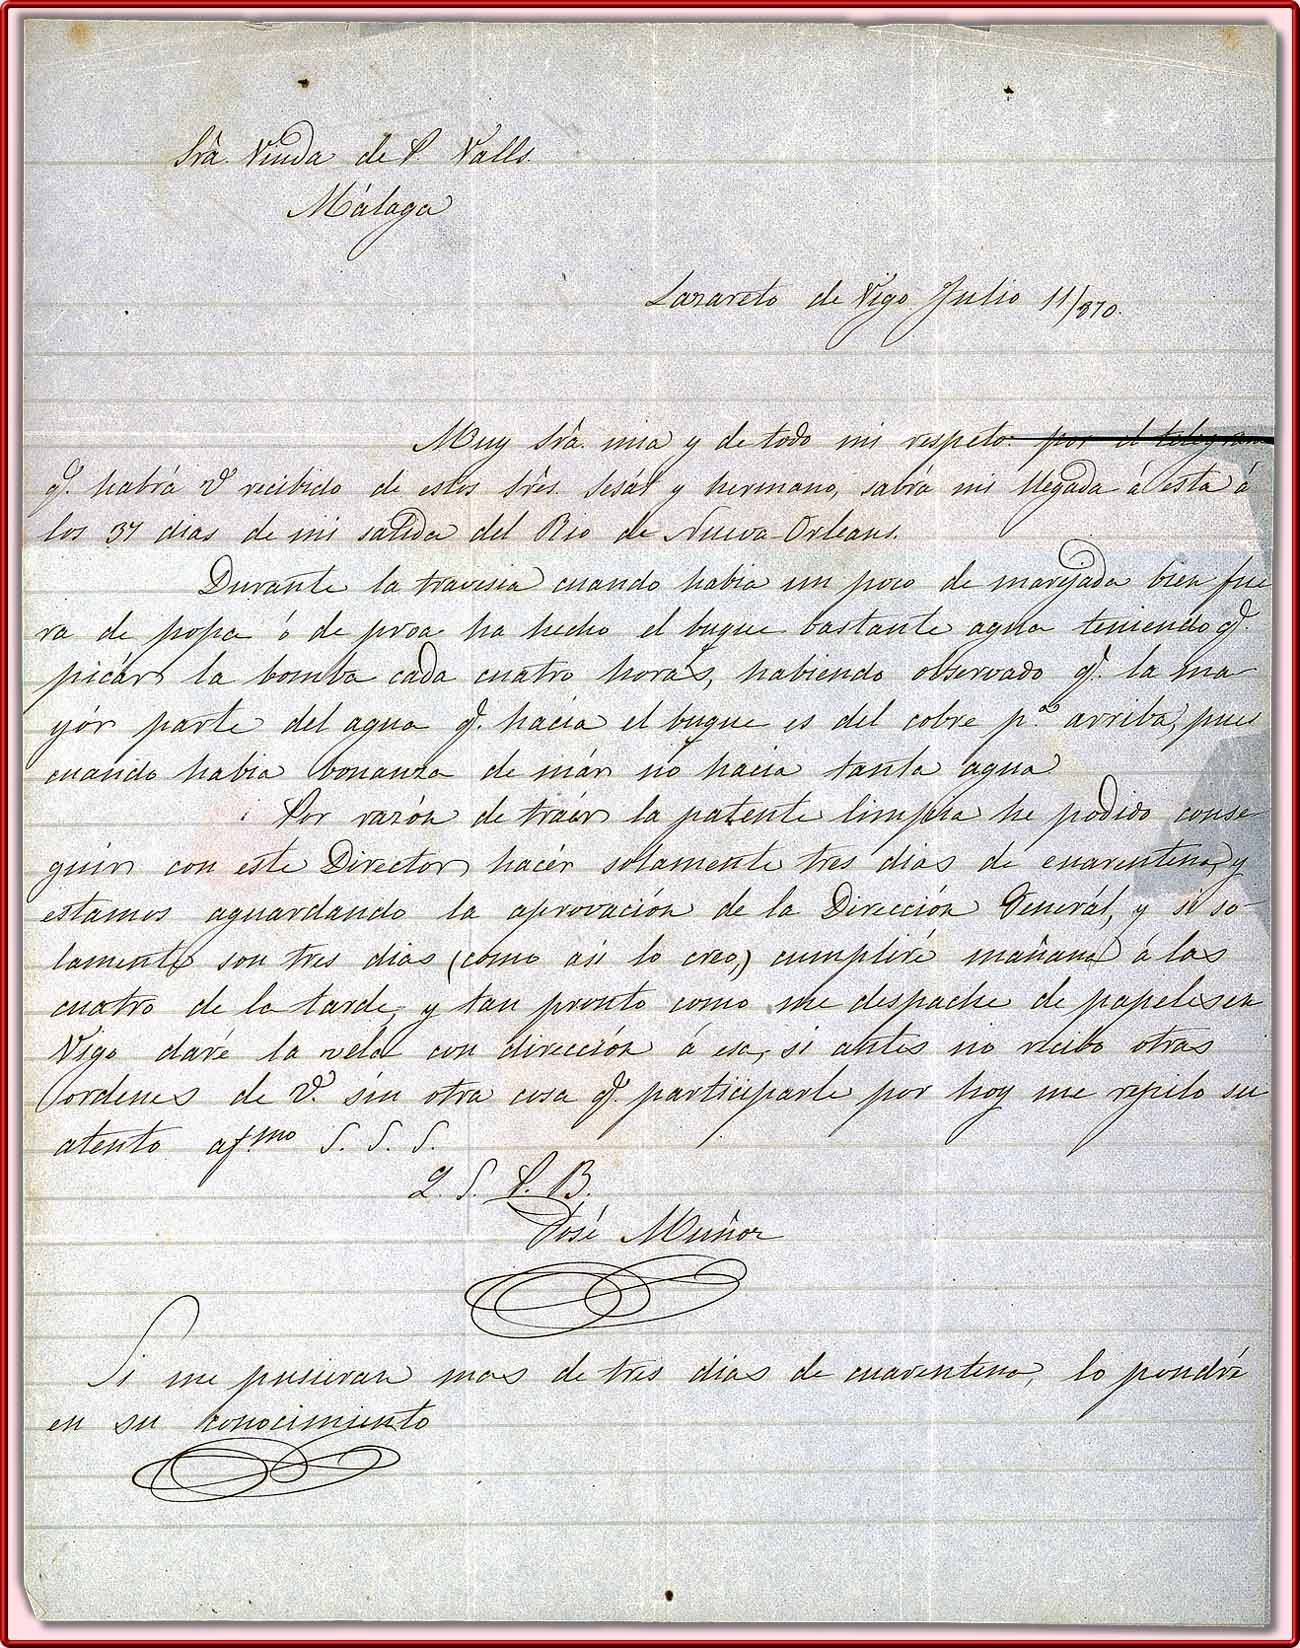 Srã. Viuda de P. Valls.
Málaga
Lazareto de Vigo Julio 11/870.
Muy Srã. mia y de todo mi respeto: por el telegrama
q.e habrá V. recibido de estos Srẽs. y hermano, sabrá mi llegada á esta á
los 37 dias de mi salida del Rio de Nueva-Orleans.
Durante la travesia cuando habia un poco de marejada bien fue
ra de popa ó de proa ha hecho el buque bastante agua teniendo q.e
picár la bomba cada cuatro horas, habiendo observado q.e la ma-
yór parte del agua q.e hacia el buque es del cobre p.a arriba, pues
cuando habia bonanza de már no hacia tanta agua.
Por razón de traér la patente limpia he podido conse-
guir con este Director hacér solamente tres dias de cuarentena, y
estamos aguardando la aprovación de la Dirección Generál, y si so-
lamente son tres dias (como asi lo creo,) cumpliré mañana á las
cuatro de la tarde, y tan pronto como me despache de papeles en
Vigo daré la vela con dirección á esa, si antes no recibo otras
ordenes de V. sin otra cosa q.e participarle por hoy me repito su
atento af.mo S. S. S.
Q. S. P. B.
José Muñoz
Si me pusieran mas de tres dias de cuarentena, lo pondré
en su conocimiento